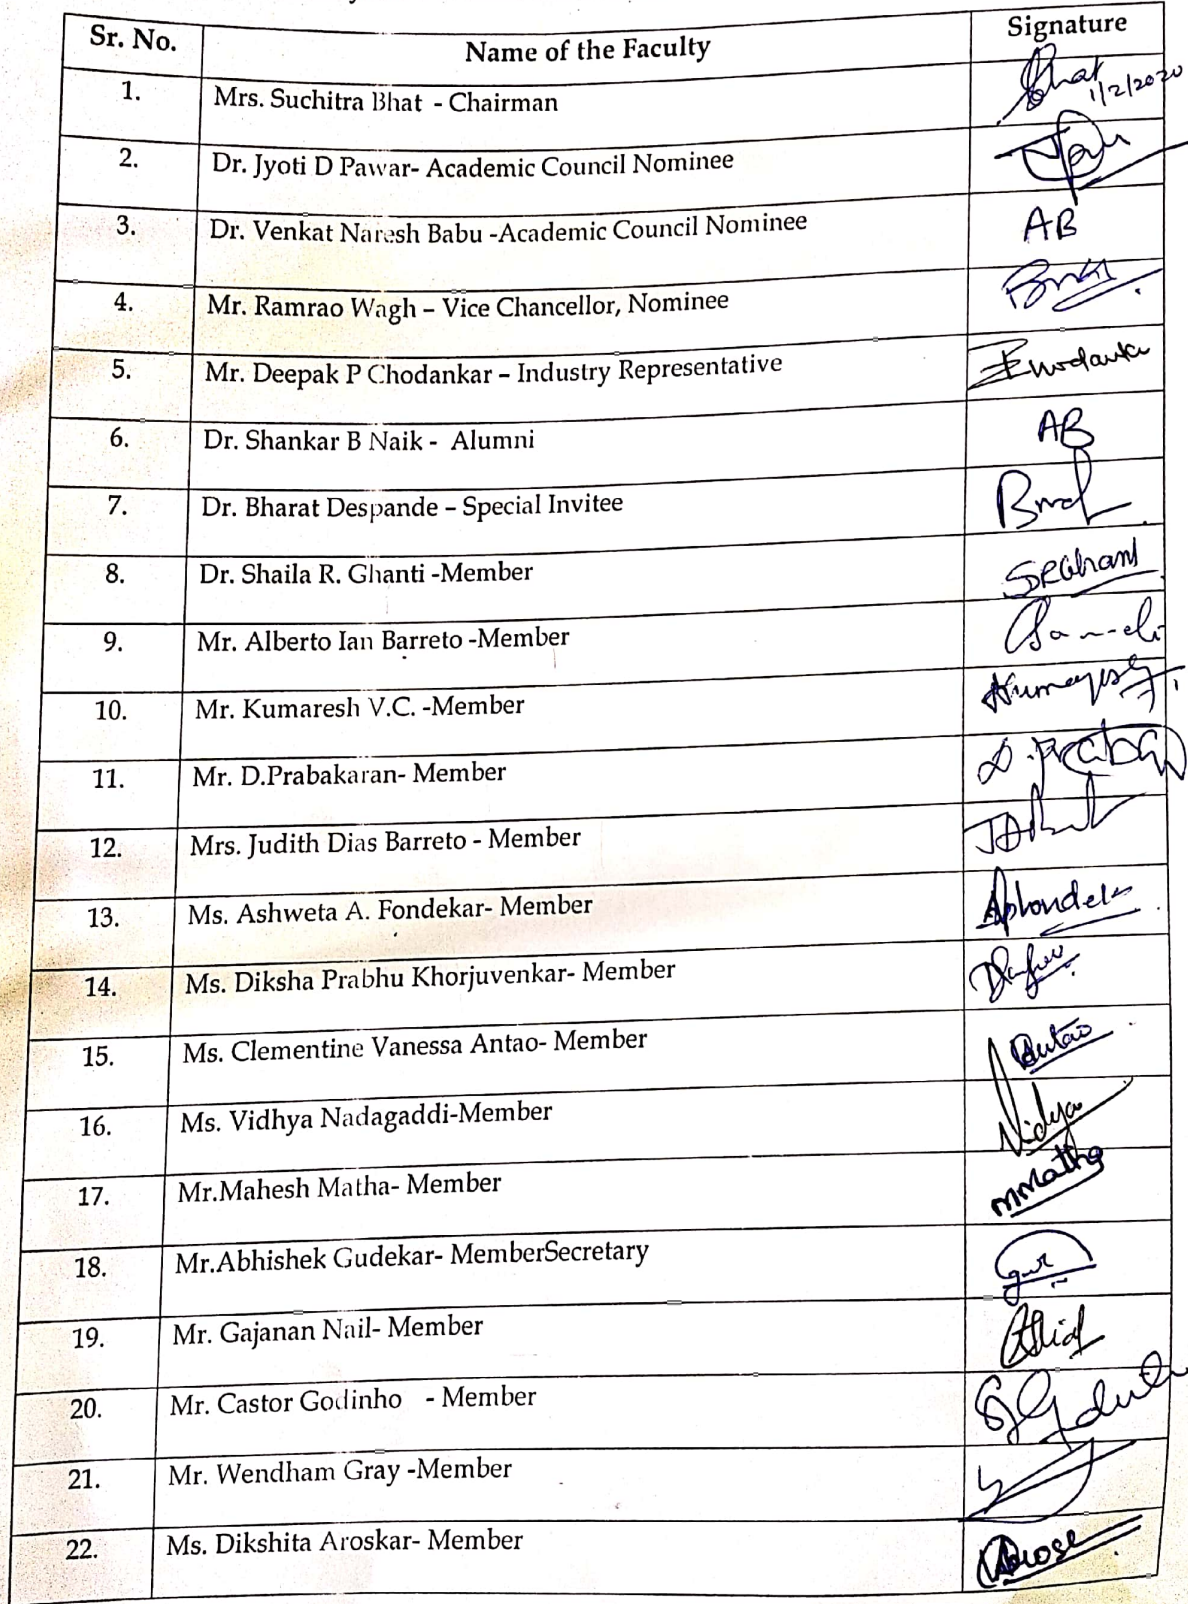 Sr. No. Name of the Faculty Signature
1. Mrs. Suchitra Bhat - Chairman Bhat
1/2/2020
2. Dr. Jyoti D Pawar- Academic Council Nominee
3. Dr. Venkat Naresh Babu -Academic Council Nominee AB
4. Mr. Ramrao Wagh – Vice Chancellor, Nominee
5. Mr. Deepak P Chodankar – Industry Representative
6. Dr. Shankar B Naik - Alumni AB
7. Dr. Bharat Despande – Special Invitee
8. Dr. Shaila R. Ghanti -Member SRGhanti
9. Mr. Alberto Ian Barreto -Member
10. Mr. Kumaresh V.C. -Member
11. Mr. D.Prabakaran- Member
12. Mrs. Judith Dias Barreto - Member
13. Ms. Ashweta A. Fondekar- Member
14. Ms. Diksha Prabhu Khorjuvenkar- Member
15. Ms. Clementine Vanessa Antao- Member Antao
16. Ms. Vidhya Nadagaddi-Member Vidya
17. Mr.Mahesh Matha- Member MMatha
18. Mr.Abhishek Gudekar- MemberSecretary
19. Mr. Gajanan Nail- Member
20. Mr. Castor Godinho - Member
21. Mr. Wendham Gray -Member
22. Ms. Dikshita Aroskar- Member